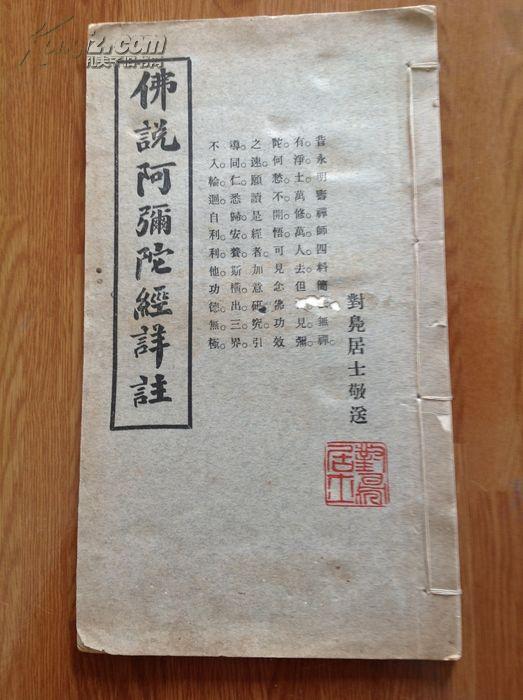 Kongfz.com
孔夫子旧书网
佛説阿彌陀經詳註
昔永明壽禪師四料簡無禪。
有淨土。萬修萬人去。但見彌
陀。何愁不開悟。可見念佛功效
之速。願讀是經者。加意研究。引
導同仁。悉歸安養。斯橫出三界。
不入輪迴。自利利他。功德無極。
對鳧居士敬送
對鳧居士